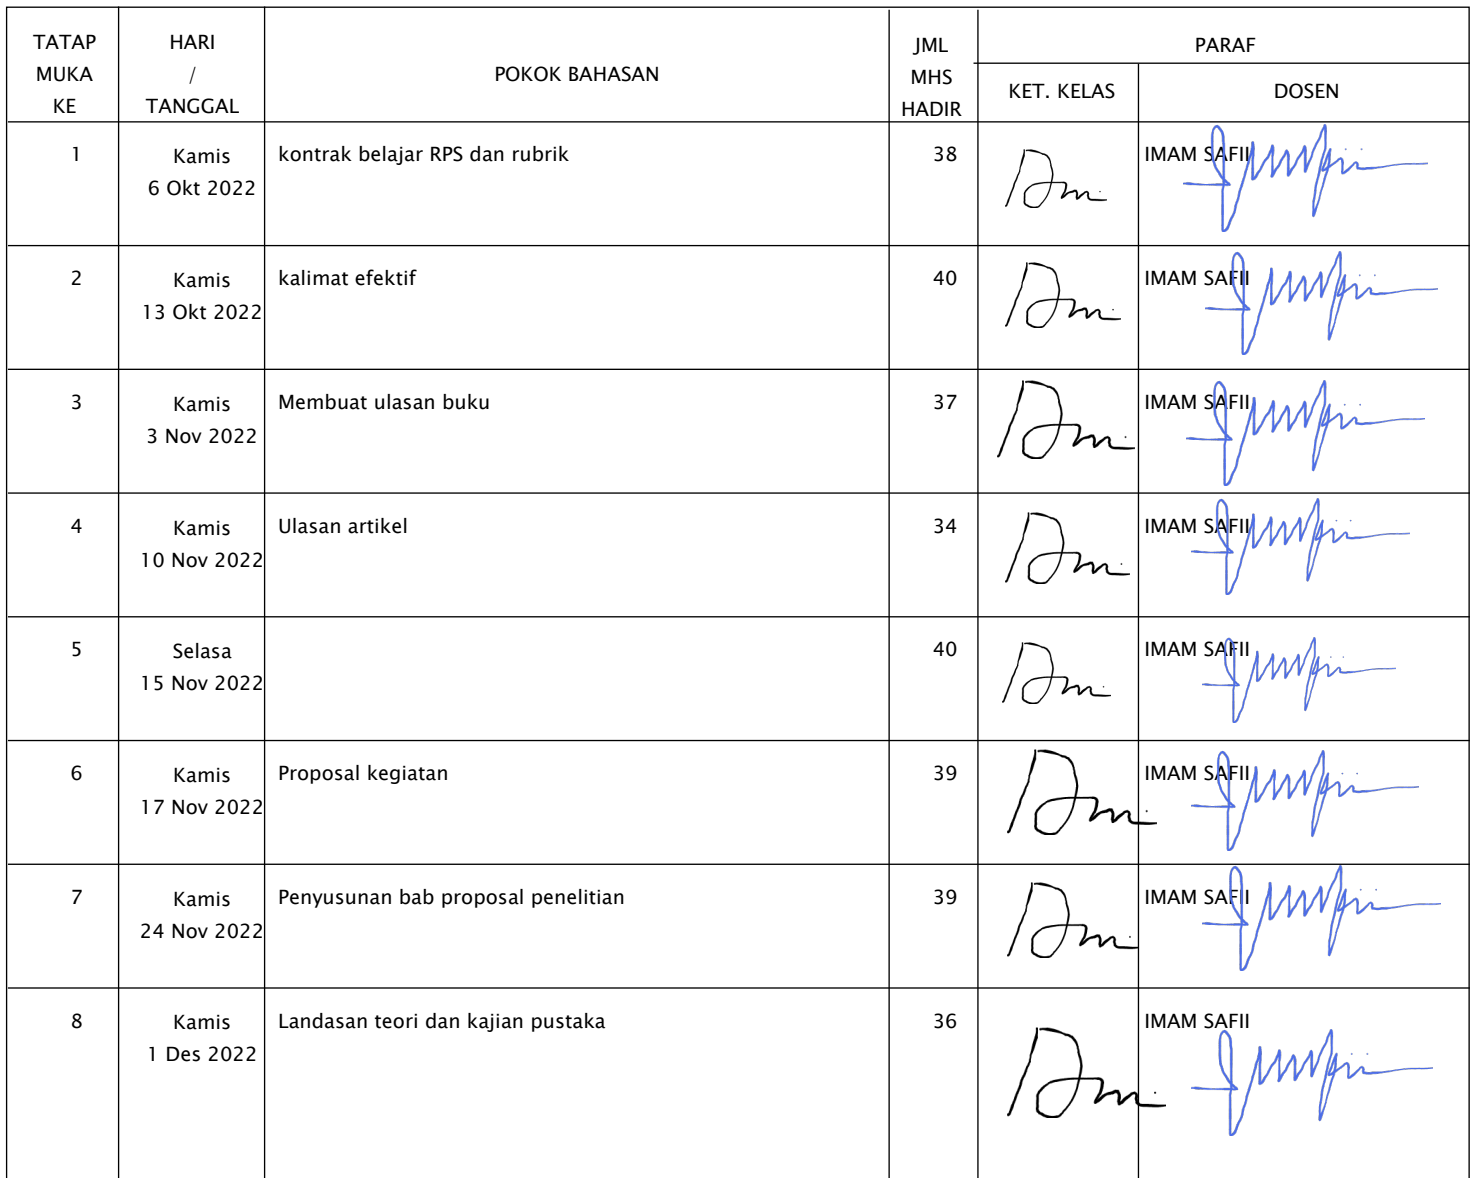 TATAP MUKA KE
HARI / TANGGAL
POKOK BAHASAN
JML MHS HADIR
PARAF
KET. KELAS
DOSEN
1
Kamis
6 Okt 2022
kontrak belajar RPS dan rubrik
38
IMAM SAFII
2
Kamis
13 Okt 2022
kalimat efektif
40
IMAM SAFII
3
Kamis
3 Nov 2022
Membuat ulasan buku
37
IMAM SAFII
4
Kamis
10 Nov 2022
Ulasan artikel
34
IMAM SAFII
5
Selasa
15 Nov 2022
40
IMAM SAFII
6
Kamis
17 Nov 2022
Proposal kegiatan
39
IMAM SAFII
7
Kamis
24 Nov 2022
Penyusunan bab proposal penelitian
39
IMAM SAFII
8
Kamis
1 Des 2022
Landasan teori dan kajian pustaka
36
IMAM SAFII